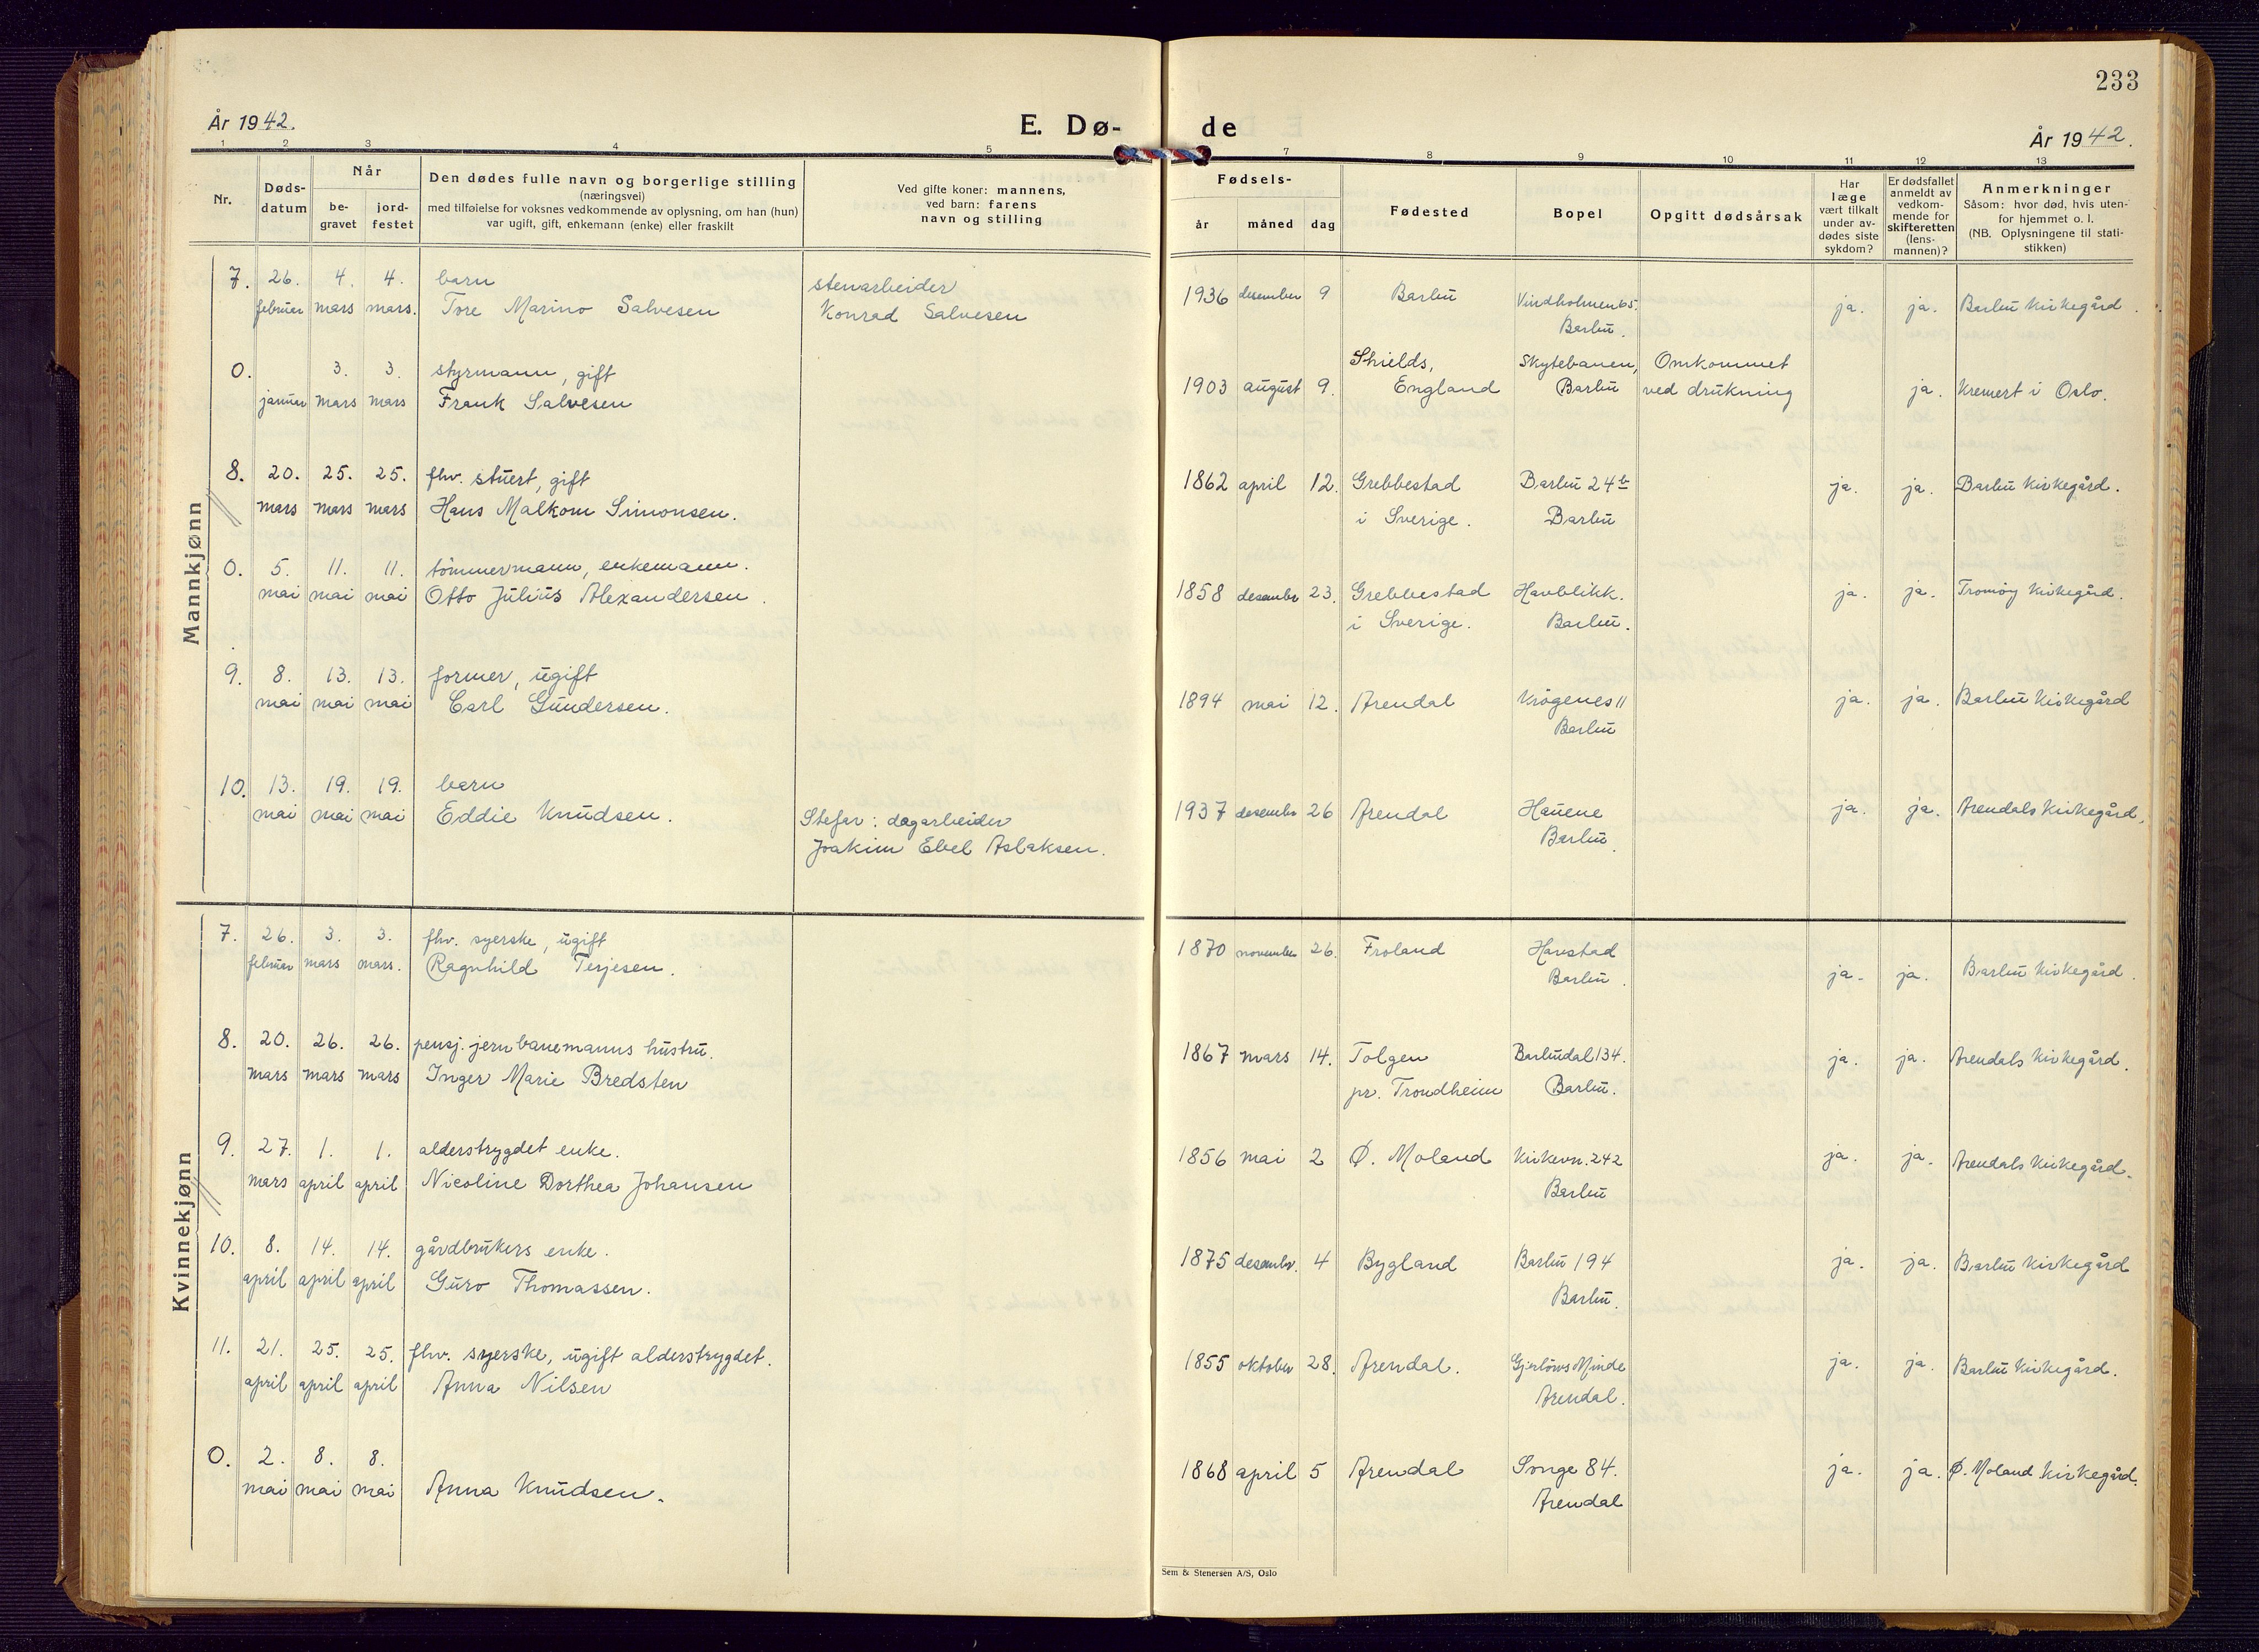 233
År 1942.
E. Dø-
de
År 1942.
1 2 3 4 5 7 8 9 10 11 12 13
Nr.
Døds-
datum
Når
be-
gravet
jord-
festet
Den dødes fulle navn og borgerlige stilling
(næringsvei)
med tilføielse for voksnes vedkommende av oplysning, om han (hun)
var ugift, gift, enkemann (enke) eller fraskilt
Ved gifte koner: mannens,
ved barn: farens
navn og stilling
Fødsels-
år måned dag
Fødested
Bopel
Opgitt dødsårsak
Har
læge
vært tilkalt
under av-
dødes siste
sykdom?
Er dødsfallet
anmeldt av
vedkom-
mende for
skifteretten
(lens-
mannen)?
Anmerkninger
Såsom: hvor død, hvis uten-
for hjemmet o. l.
(NB. Oplysningene til stati-
stikken)
Mannkjønn
7. 26. 4. 4. barn stenarbeider
februar mars mars. Tore Marino Salvesen Konrad Salvesen
1936 desember 9 Barbu Vindholmen 65. ja. ja. Barbu Kirkegård.
Barbu.
0. 3. 3. styrmann, gift
januar mars mars Frank Salvesen
Shields, Skytebanen, Omkommet
1903 august 9. England Barbu ved drukning ja. Kremert i Oslo.
8. 20. 25. 25. fhv. stuert, gift
mars mars mars Hans Malkom Simonsen.
1862 april 12. Grebbestad Barbu 24b ja. ja. Barbu Kirkegård.
i Sverige. Barbu
0. 5. 11. 11. tømmermann, enkemann.
mai mai mai Otto Julius Alexandersen.
1858 desember 23. Grebbestad Havblikk. ja. ja. Tromøy Kirkegård.
i Sverige. Barbu.
9. 8. 13. 13. former, ugift
mai mai mai Carl Gundersen.
1894 mai 12. Arendal Krøgenes 11 ja. ja. Barbu Kirkegård
Barbu
10. 13. 19. 19. barn
mai mai mai Eddie Knudsen. Stefar: dagarbeider
Joakim Ebel Aslaksen.
1937 desember 26 Arendal Hauene ja. ja. Arendals Kirkegård.
Barbu.
Kvinnekjønn
7. 26. 3. 3. fhv. syerske, ugift
februar mars mars. Ragnhild Terjesen.
1870 november 26. Froland Havstad ja. ja. Barbu Kirkegård.
Barbu.
8. 20. 26. 26. pensj. jernbanemanns hustru.
mars mars mars Inger Marie Bredsten
1867 mars 14. Tolgen Barbudal 134. ja. ja. Arendals Kirkegård.
pr. Trondheim Barbu.
9. 27. 1. 1. alderstrygdet enke.
mars april april Nicoline Dorthea Johansen
1856 mai 2 Ø. Moland Kirkevn. 242 ja. ja. Arendals Kirkegård.
Barbu
10. 8. 14. 14. gårdbrukers enke.
april april april Guro Thomassen.
1875 desembr. 4 Bygland Barbu 194 ja. ja. Barbu Kirkegård
Barbu.
11. 21. 25. 25. fhv. syerske, ugift alderstrygdet.
april april april Anna Nilsen
1855 oktober 28. Arendal. Gjerløws Minde ja. ja. Barbu Kirkegård.
Arendal.
0. 2. 8. 8.
mai mai mai Anna Knudsen.
1868 april 5 Arendal Songe 84. ja. ja. Ø. Moland Kirkegård.
Arendal
Sem & Stenersen A/S, Oslo